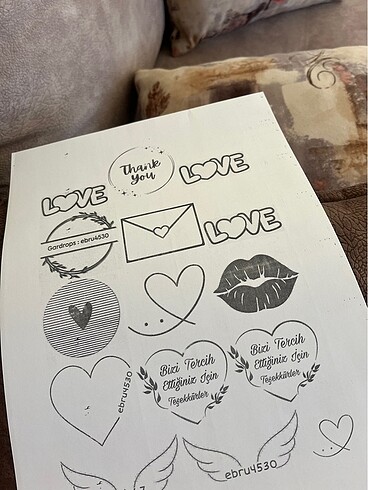 Thank
you
LOVE
LOVE
Gardrops : ebru4530
LOVE
ebru4530
Bizi Tercih
Ettiğiniz İçin
Teşekkürler
Bizi Tercih
Ettiğiniz İçin
Teşekkürler
ebru4530